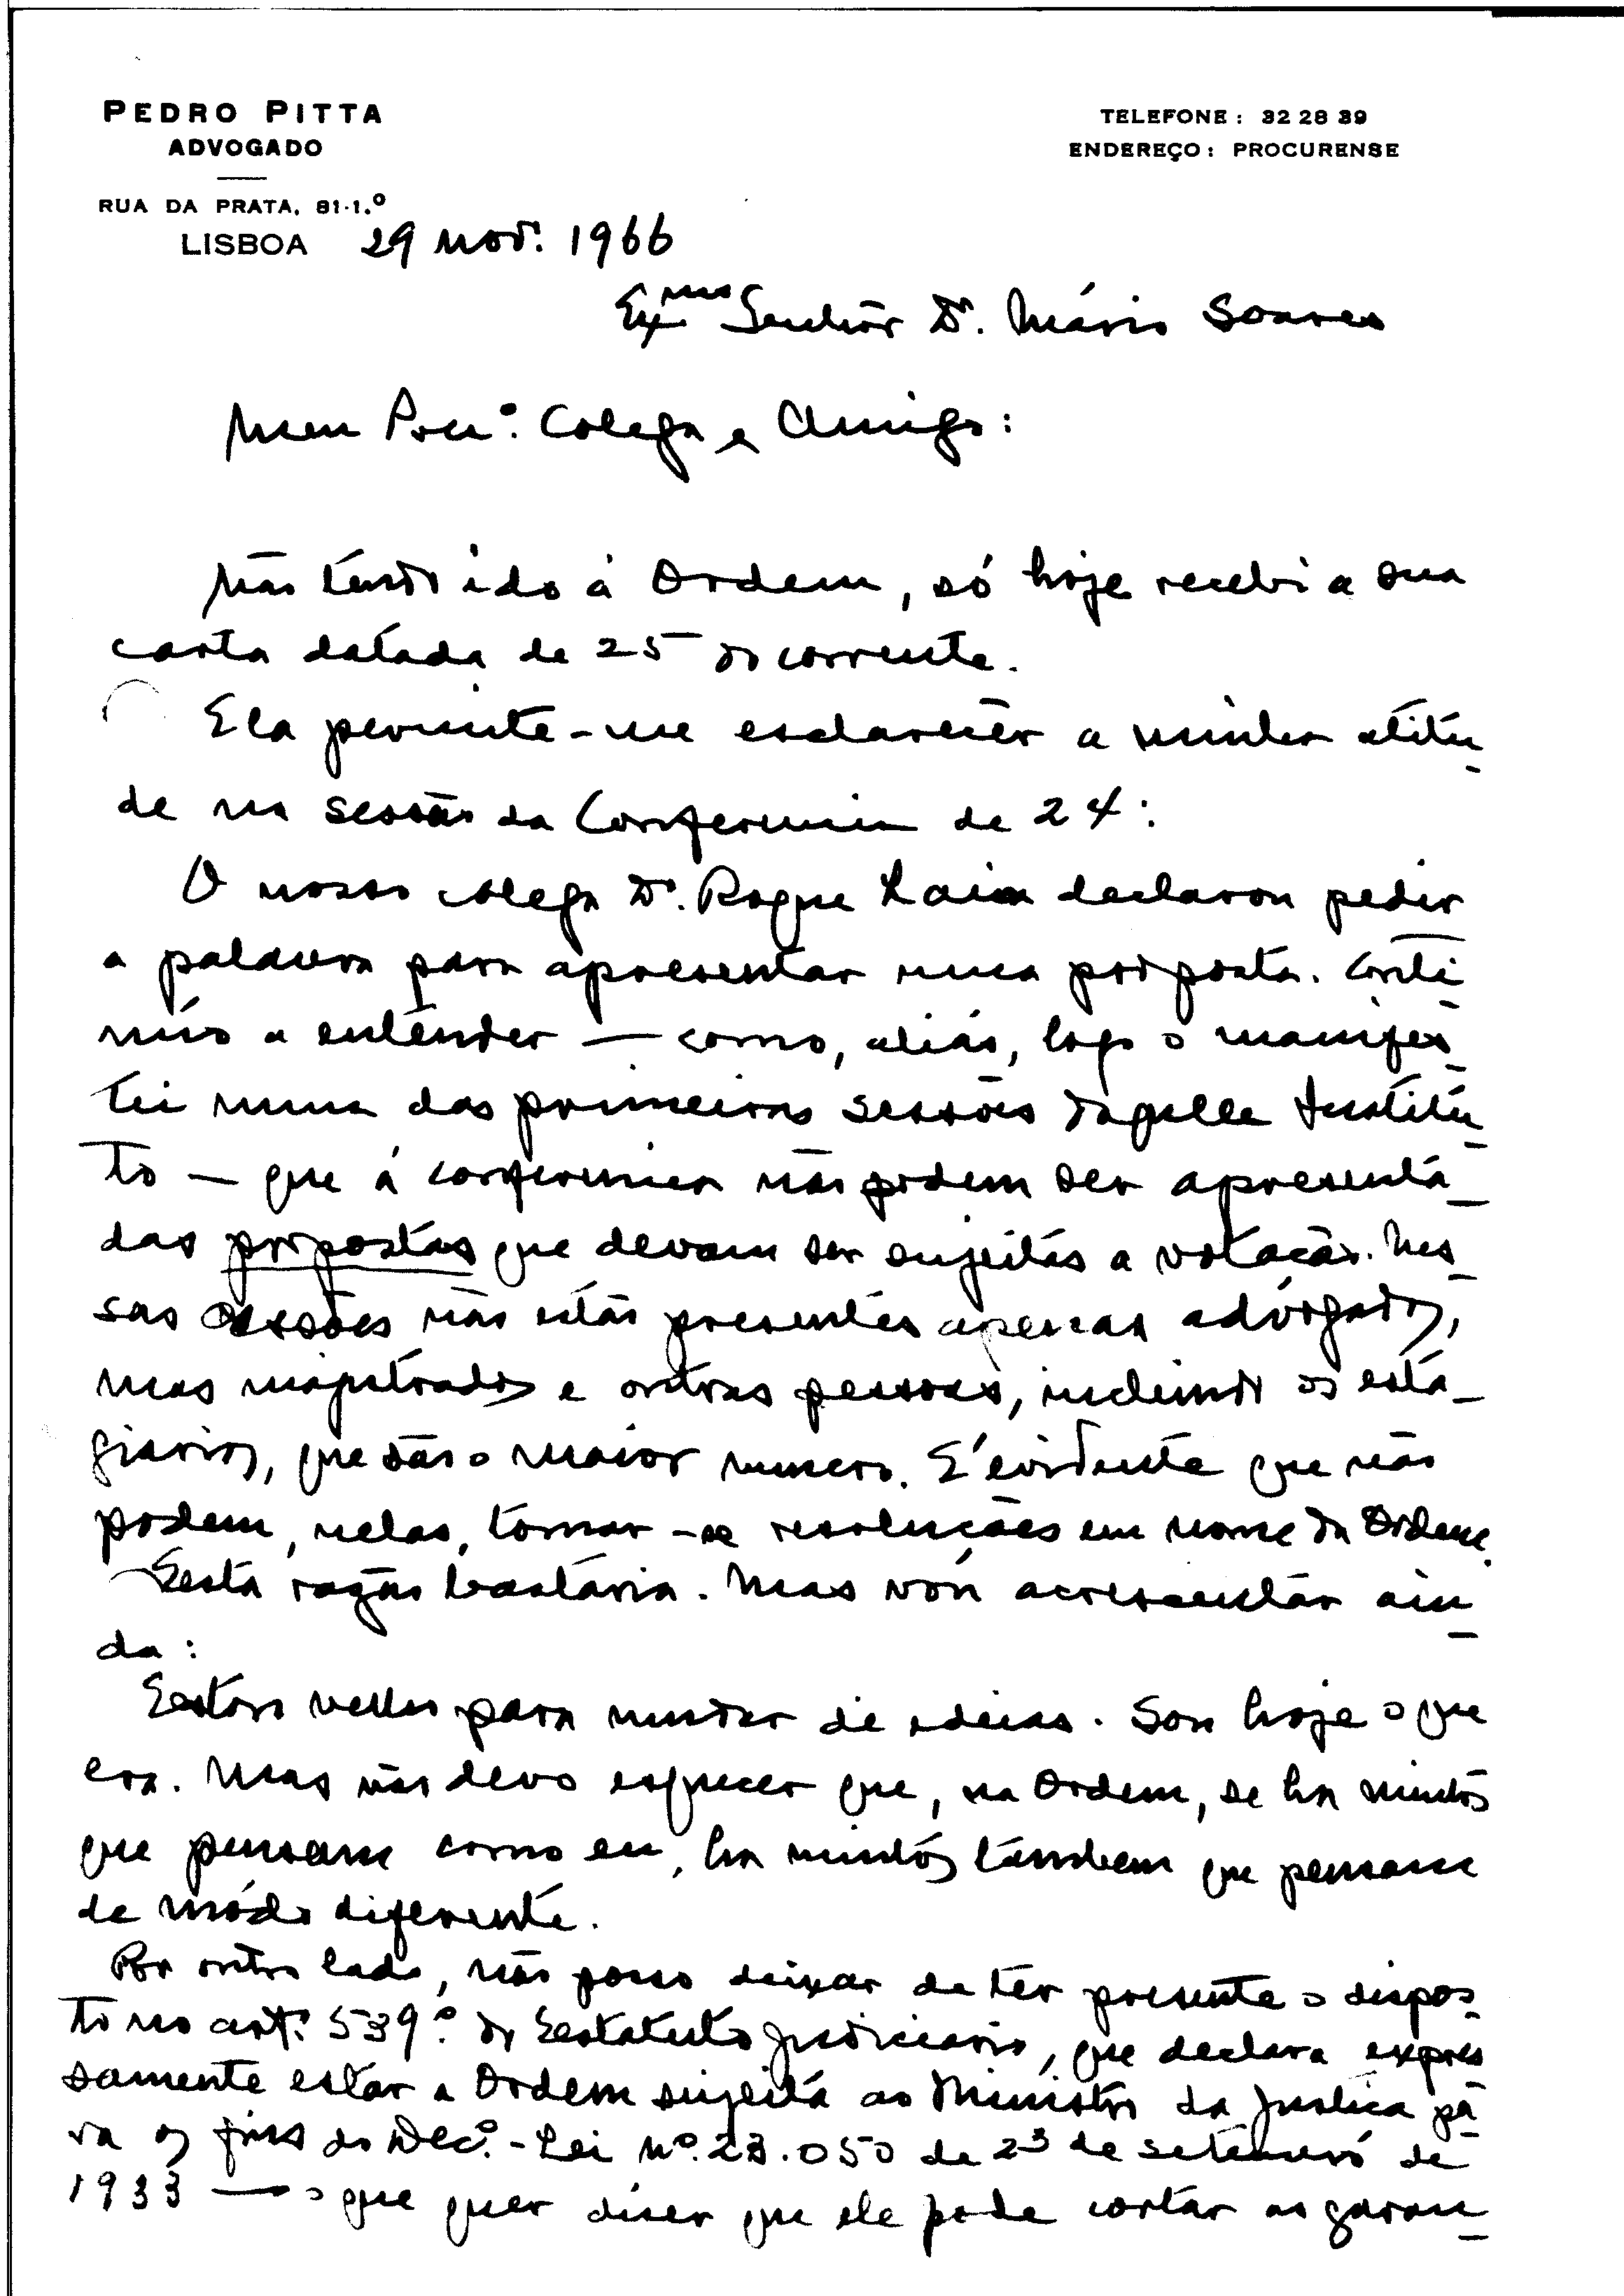 PEDRO PITTA
ADVOGADO
RUA DA PRATA, 81-1.º
LISBOA 29 Nov. 1966
TELEFONE: 32 28 39
ENDEREÇO: PROCURENSE
Exmo Senhôr Dr. Mário Soares
Meu Colega e Amigo:
Não tendo ido á Ordem, só hoje recebi a sua
carta datada de 25 do corrente.
Ela permite-me esclarecêr a minha atitu
de na sessão da Conferencia de 24:
O nosso colega Dr. Roque Laia declarou pedir
a palavra para apresentar uma proposta. Conti
núo a entendêr — como, aliás, logo o manifes
tei numa das primeiras sessões daquelle Institu
to — que á conferencia não podem ser apresenta
das propostas que devam ser sujeitas a votação. Nes
sas sessões não estão presentes apenas advogados,
mas magistrados e outras pessoas, incluindo os esta-
giarios, que são o maior numero. E' evidente que não
podem, nelas, tomar-se resoluções em nome da Ordem.
Esta razão bastaria. Mas vou acrescentar ain
da:
Estou velho para mudar de ideias. Sou hoje o que
era. Mas não devo esquecer que, na Ordem, se ha muitos
que pensam como eu, ha muitos tambem que pensam
de módo diferente.
Por outro lado, não posso deixar de têr presente o dispos
to no art.º 539.º do Estatuto Judiciario, que declara expres
samente estar a Ordem sujeita ao Ministro da Justiça pa
ra os fins do Dec.º-Lei Nº. 23.050 de 23 de setembro de
1933 — o que quer dizer que ele pode cortar as garan